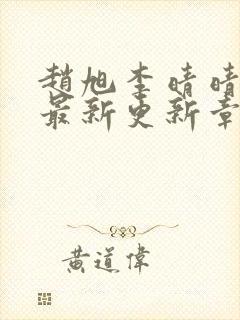 趙旭李晴晴
最新更新章
黃道偉